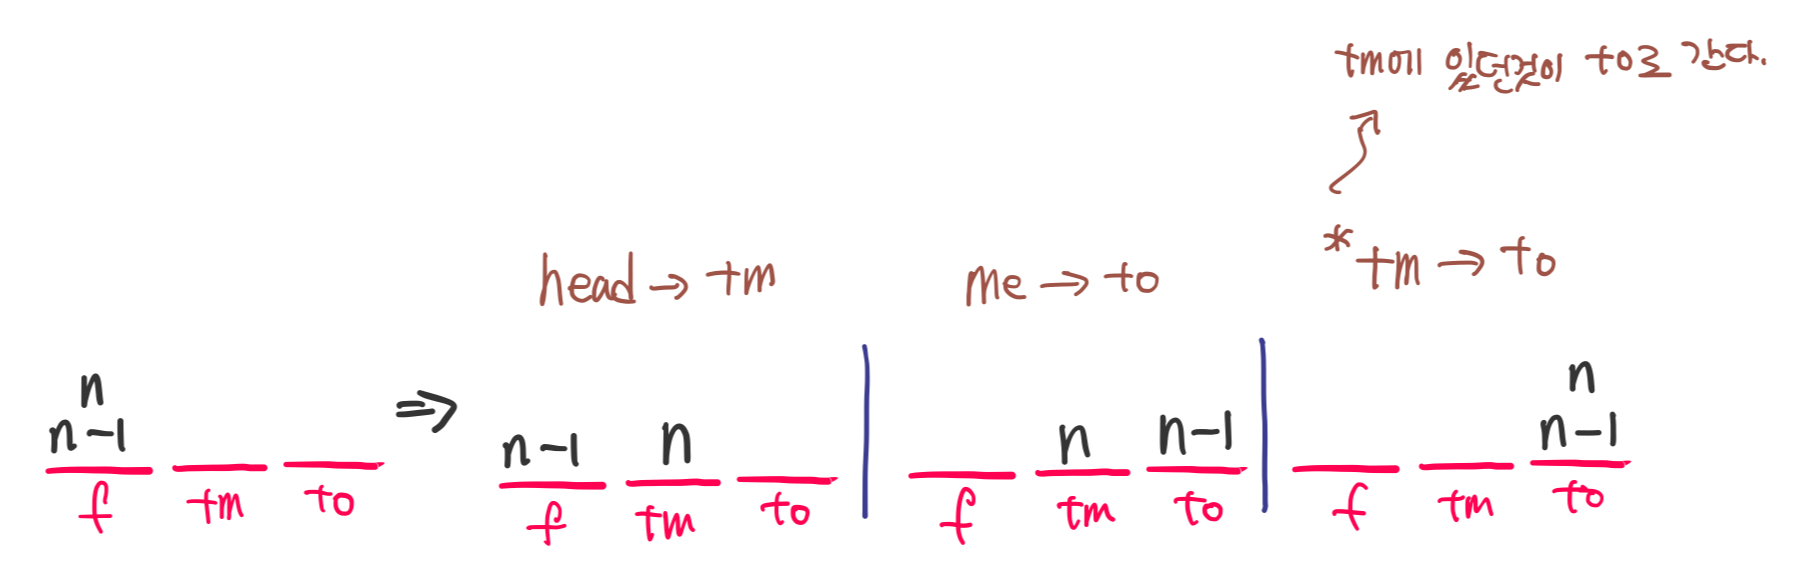 tm에 있던것이 to로 간다.
head → tm
me → to
* tm → to
n
n-1
f tm to
⇒
n-1 n
f tm to
n n-1
f tm to
n
n-1
f tm to